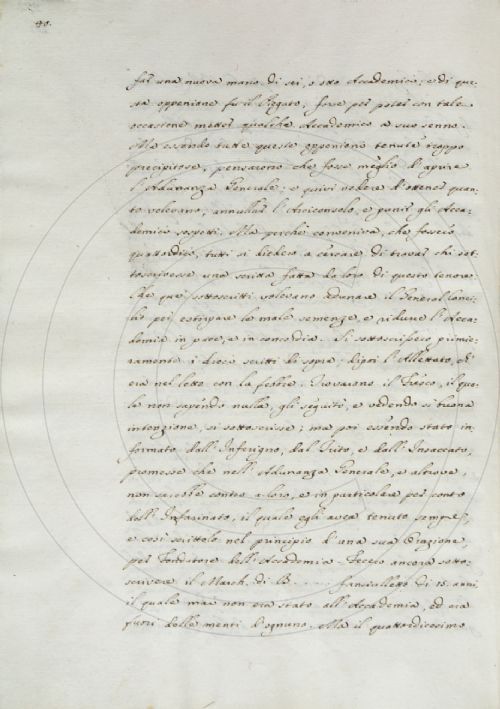 40.
far una nuova mano di sei, o otto Accademici; e di que-
sta oppenione fu il Rigato, forse per poter con tale
occasione metter qualche Accademico a suo senno.
Ma essendo tutte queste oppenioni tenute troppo
precipitose, pensarono che fosse meglio l'aprire
l'Adunanza Generale; e quivi vedere d'ottener quan-
to volevano, annullar l'Arciconsolo, e punir gli Acca-
demici sospetti. Ma perchè conveniva, che fossero
quattordici, tutti si diedero a cercare di trovar chi sot-
toscrivesse una scritta fatta da loro di questo tenore
Che que' sottoscritti volevano adunare il General Conci-
lio per estirpare la male semenze, e ridurre l'Acca-
demia in pace, e in concordia. Si sottoscrissero primie-
ramente i dieci scritti di sopra; dipoi l'Allettato, ch'
era nel letto con la febbre. Trovarono il Fresco, il qua-
le non sapendo nulla, gli seguitò, e vedendo sì buona
intenzione, si sottoscrisse; ma poi essendo stato in-
formato dall'Inferigno, dal Trito, e dall'Insaccato,
promesse che nell'Adunanza Generale, e altrove,
non sarebbe contro a loro, e in particolare per conto
dell'Infarinato, il quale egli avea tenuto sempre,
e così scrittolo nel principio d'una sua Orazione,
per Fondatore dell'Accademia. Fecero ancora sotto-
scrivere il March. di B..... fancialletto di 15. anni
il quale mai non era stato all'Accademia, ed era
fuori delle menti d'ognuno. Ma il quattordicesimo